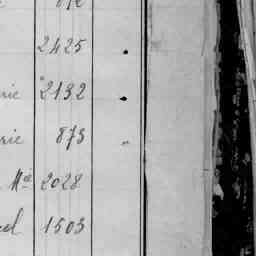 2425
rie 2132
rie 873
Mce 2028
el 1503